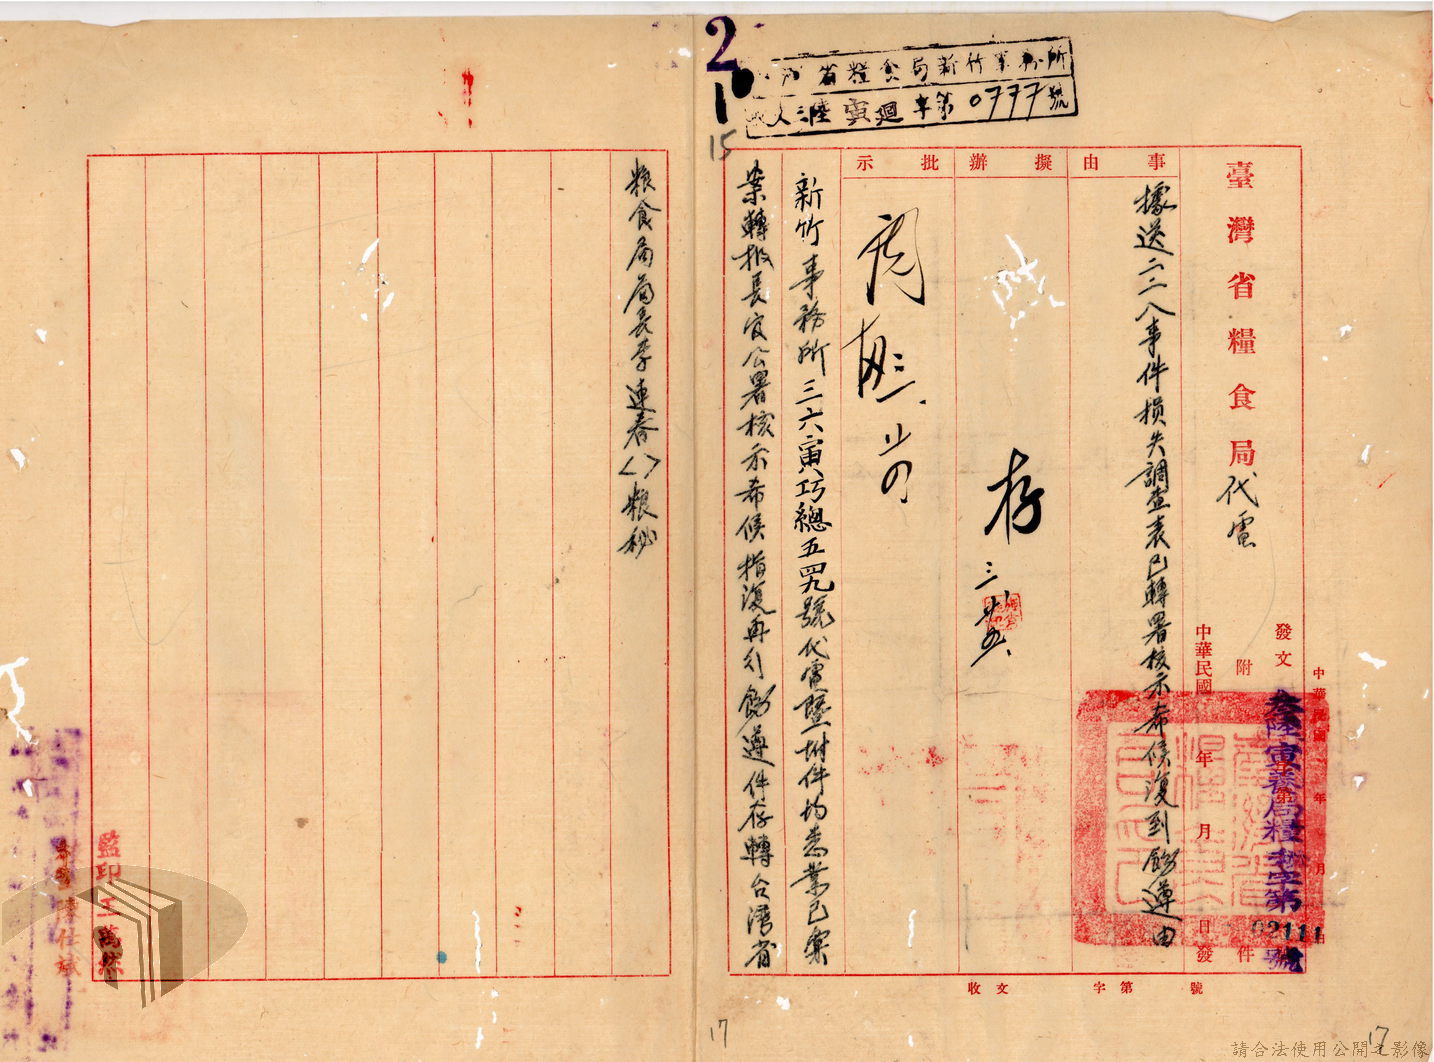 2
1
15
省糧食局新竹事務所
三陸寅迴字第0777號
臺灣省糧食局代電
發文
附件
中華民國 年 月 日發
中華民國 年 月 日
叁陸寅 局糧秘字第02111號
事由
據送二二八事件損失調查表已轉署核示希候復到飭遵由
擬辦
存
批示
新竹事務所三六寅巧總五四九號代電暨附件均悉業已案
案轉報長官公署核示希候指復再行飭遵件存轉台灣省
粮食局局長李連春〈〉粮秘
監印王萬
收文 字第 號
17
17
請合法使用公開之影像